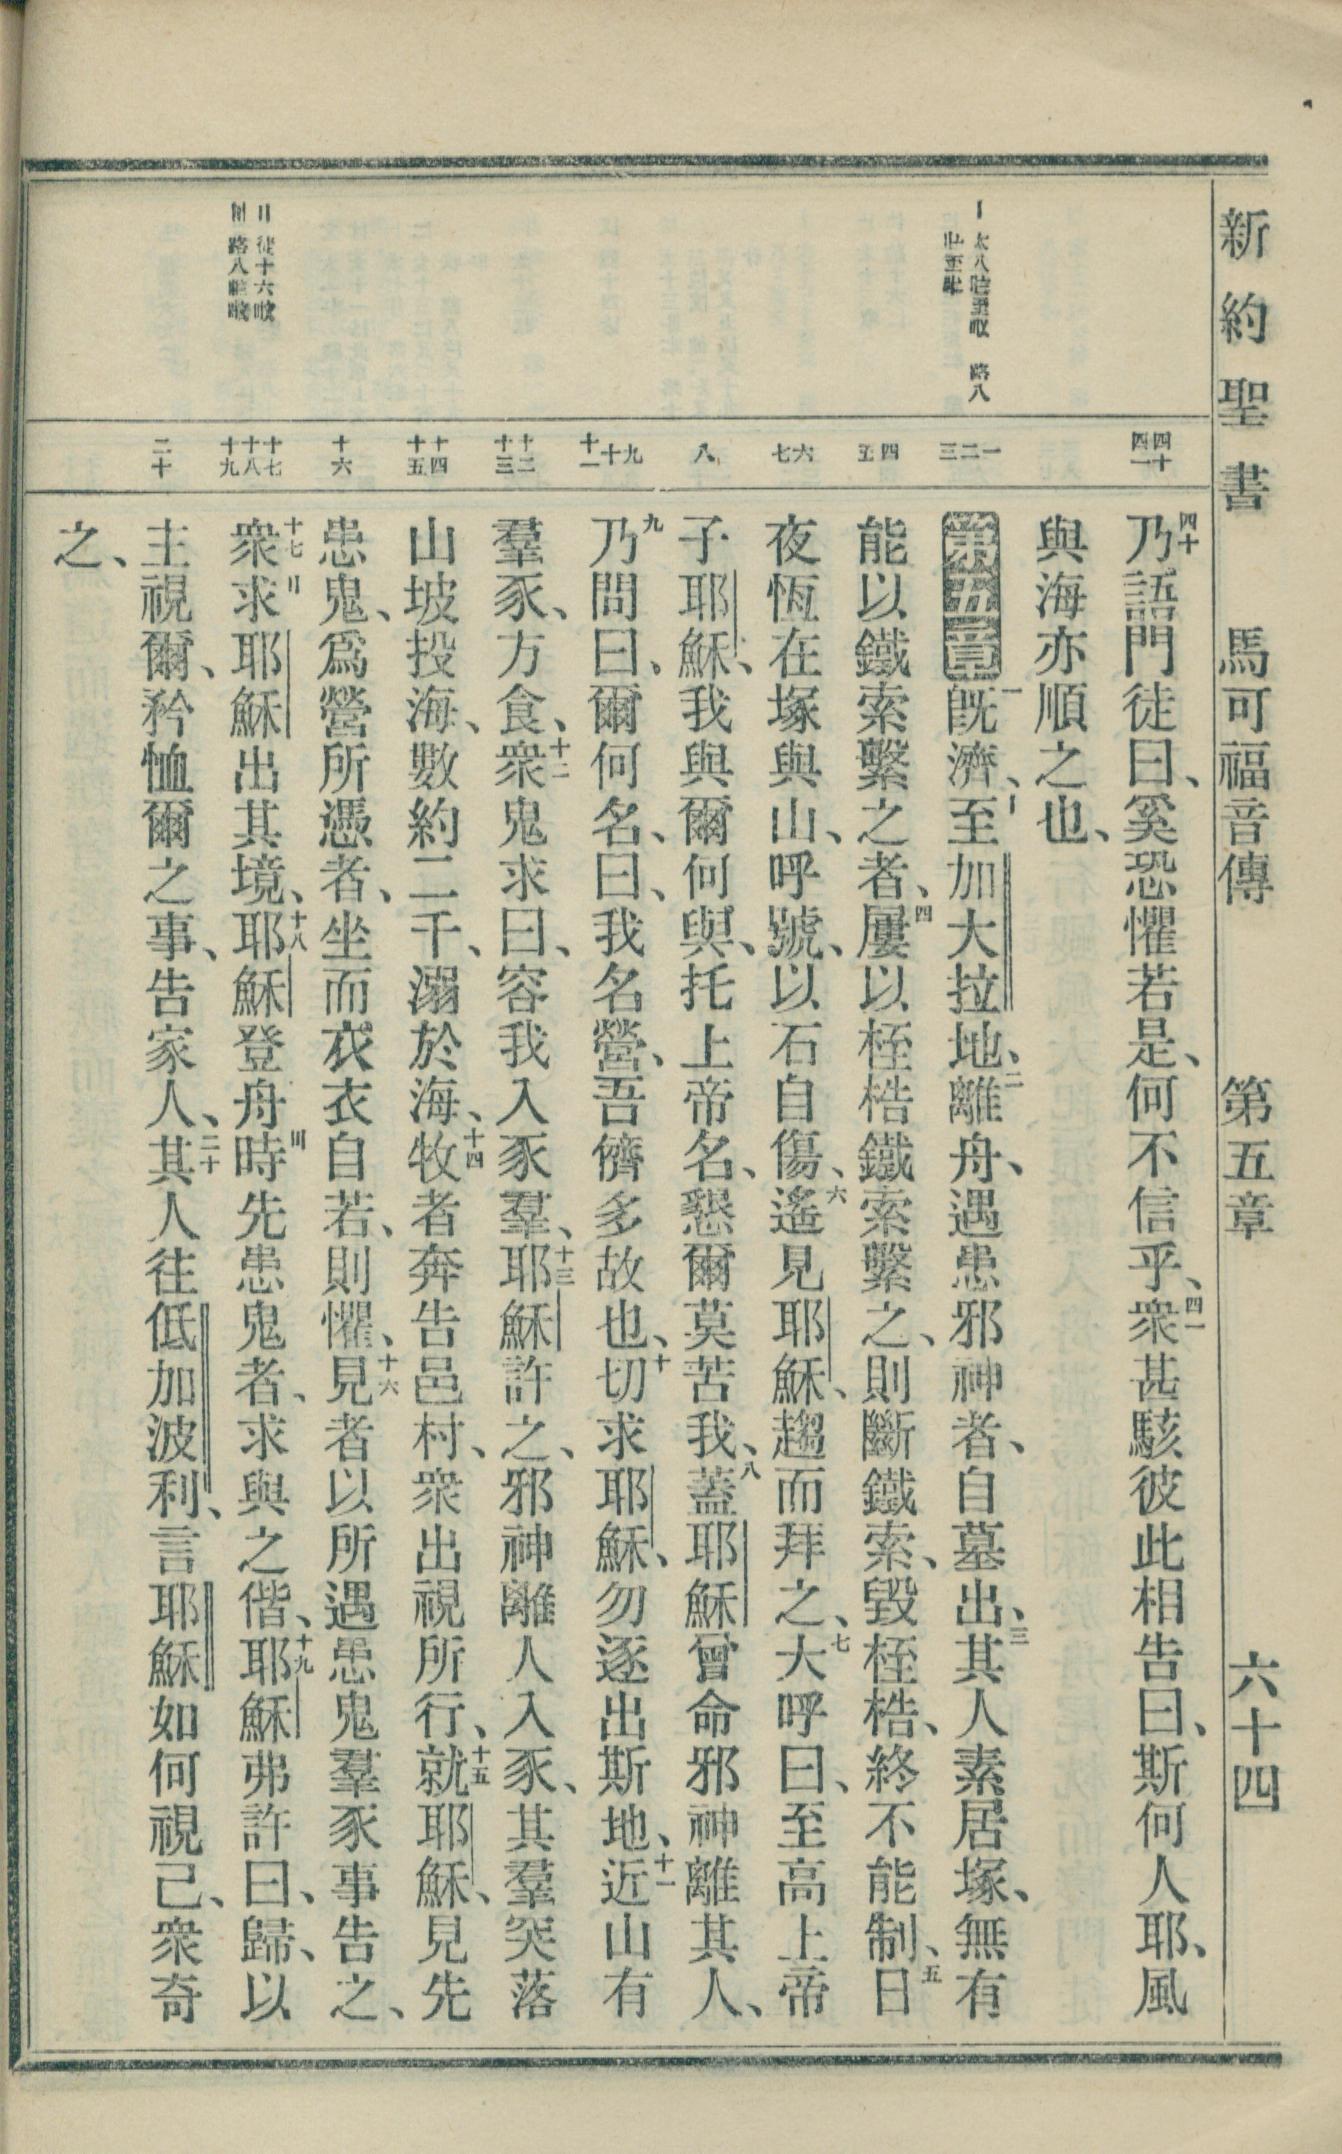 新約聖書 馬可福音傳 第五章 六十四
四十 四一
乃語門徒曰、奚恐懼若是、何不信乎、衆甚駭彼此相告曰、斯何人耶、風
與海亦順之也、
一 二 三
第五章 旣濟、至加大拉地、離舟、遇患邪神者、自墓出、其人素居塚、無有
四 五
能以鐵索繫之者、屢以桎梏鐵索繫之、則斷鐵索、毀桎梏、終不能制、日
六 七
夜恆在塚與山、呼號、以石自傷、遙見耶穌、趨而拜之、大呼曰、至高上帝
八
子耶穌、我與爾何與、托上帝名、懇爾莫苦我、蓋耶穌曾命邪神離其人、
九 十 十一
乃問曰、爾何名、曰、我名營、吾儕多故也、切求耶穌、勿逐出斯地、近山有
十二 十三
羣豕、方食、衆鬼求曰、容我入豕羣、耶穌許之、邪神離人入豕、其羣突落
十四 十五
山坡投海、數約二千、溺於海、牧者奔告邑村、衆出視所行、就耶穌、見先
十六
患鬼、爲營所憑者、坐而衣衣自若、則懼、見者以所遇患鬼羣豕事告之、
徒十六
路八
十七 十八 十九
衆求耶穌出其境、耶穌登舟時先患鬼者、求與之偕、耶穌弗許曰、歸、以
二十
主視爾、矜恤爾之事、告家人、其人往低加波利、言耶穌如何視己、衆奇
之、